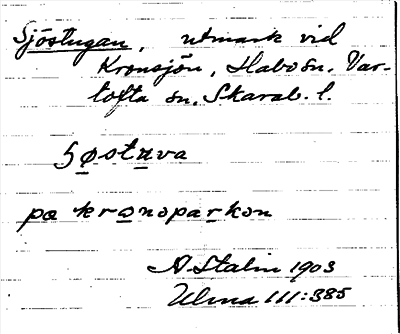 Sjöstugan, utmark vid
Kronsjön, Habo sn, Var-
tofta sn, Skarab. l.
søstuva
pa kronoparkon
A Stalin 1903
Ulma 111:385